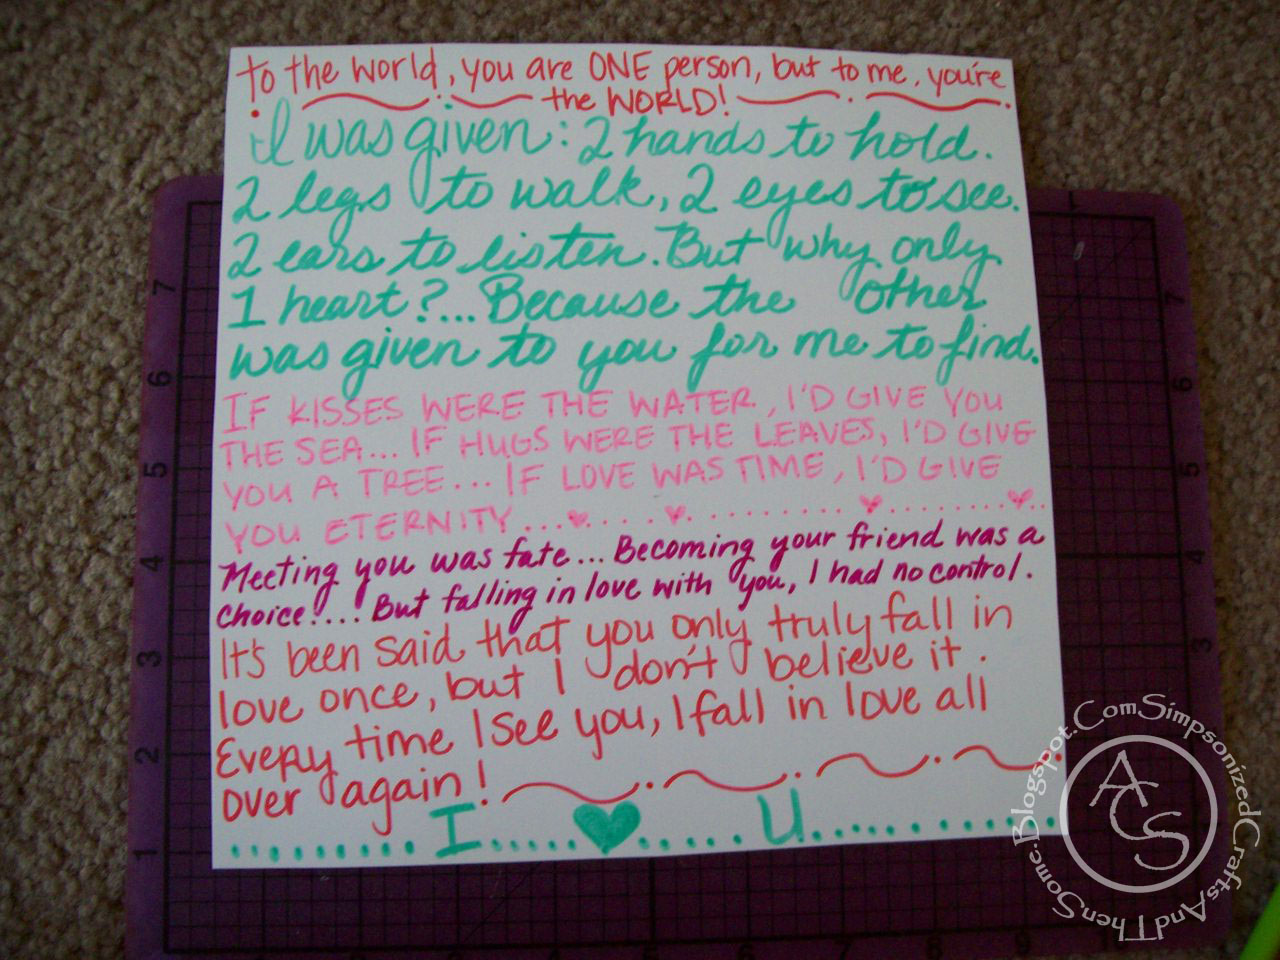 to the world, you are ONE person, but to me, you're
the WORLD!
I was given: 2 hands to hold.
2 legs to walk, 2 eyes to see.
2 ears to listen. But why only
1 heart?... Because the other
was given to you for me to find.
IF KISSES WERE THE WATER, I'D GIVE YOU
THE SEA... IF HUGS WERE THE LEAVES, I'D GIVE
YOU A TREE... IF LOVE WAS TIME, I'D GIVE
YOU ETERNITY...
Meeting you was fate... Becoming your friend was a
choice!... But falling in love with you, I had no control.
It's been said that you only truly fall in
love once, but I don't believe it.
Every time I see you, I fall in love all
over again!
I ♥ U
7
6
5
4
3
2
1
7
6
5
4
3
SimpsonizedCraftsAndThenSome.Blogspot.Com
ACS